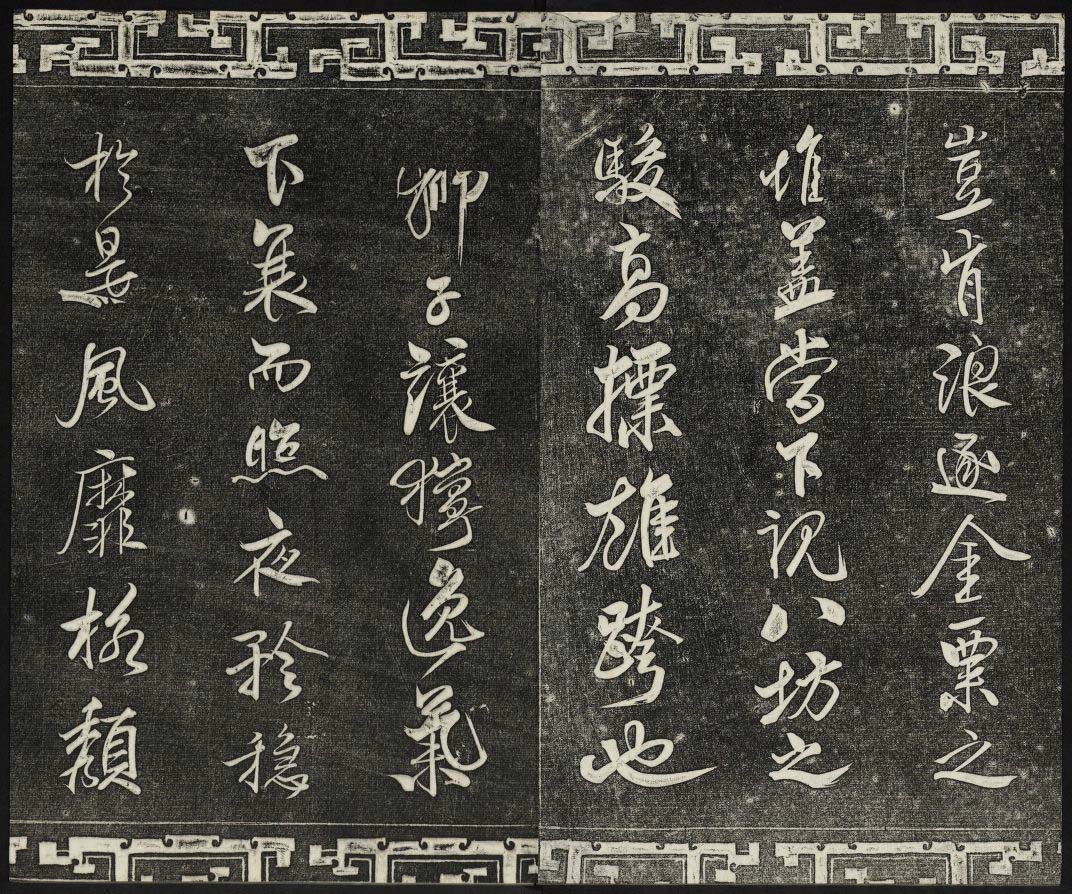 豈肯浪逐金粟之
堆盖嘗下視八坊之
駿高摽雄跨也
獅子讓獰逸氣
下而照夜矜穩
於是風靡格頹